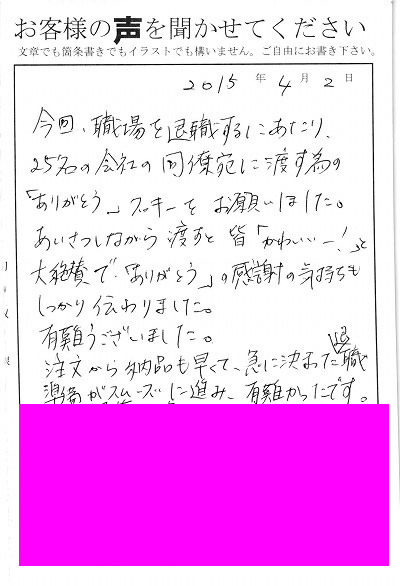 お客様の声を聞かせてください
文章でも箇条書きでもイラストでも構いません。ご自由にお書き下さい。
2015年4月2日
今回、職場を退職するにあたり、
25名の会社の同僚宛に渡す為の
「ありがとう」クッキーをお願いしました。
あいさつしながら渡すと皆「かわいいー!」と
大絶賛で、「ありがとう」の感謝の気持ちも
しっかり伝わりました。
有難うございました。
注文から納品も早くて、急に決まった退職
準備がスムーズに進み、有難かったです。